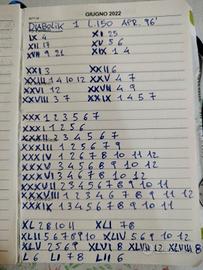 GIUGNO 2022
DIABOLIK 1 L.150 APR. 96'
IX 4 XI 25
XII 17 XV 5 6
XVII 9 21 XIX 1 4
XXI 3 XXII 6
XXIII 1 4 10 12 XXV 4 7
XXVI 12 XXVII 4 9
XXVIII 3 7 XXIX 1 4 5 7
XXX 1 2 3 5 6 7
XXXI 1 2 5 6
XXXII 2 3 4 5 6 7
XXXIII 1 2 5 6 7 9
XXXIV 1 2 6 7 8 10 11 12
XXXV 3 4 5 6 8 9 10 12
XXXVI 1 3 4 6 7 8 9 12
XXXVII 2 3 4 5 6 7 8 9 10 11
XXXVIII 1 2 3 4 6 7 8 9 11 12
XXXIX 1 3 4 5 6 7 8 9 10 11
XL 2 8 10 11 XLI 7 8
XLII 5 6 7 8 9 10 XLIV 5 6 9 10 12
XLV 2 5 6 9 XLVI 8 XLVII 12 XLVIII 8
L 6 LI 7 8 LII 6